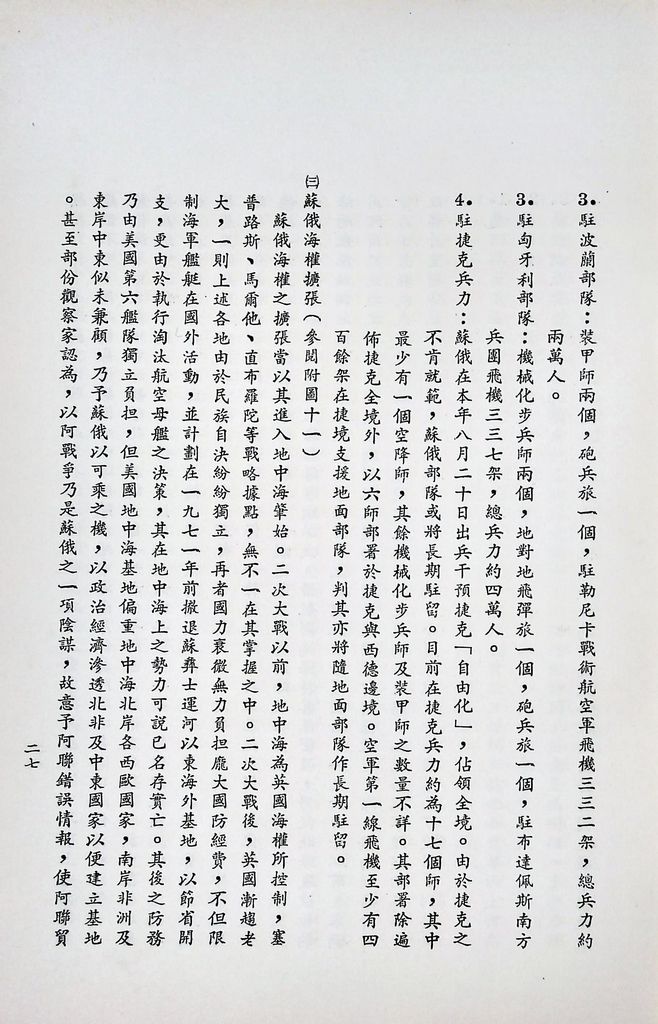 3.駐波蘭部隊：裝甲師兩個，砲兵旅一個，駐勒尼卡戰術航空軍飛機三三二架，總兵力約
兩萬人。
3.駐匈牙利部隊：機械化步兵師兩個，地對地飛彈旅一個，砲兵旅一個，駐布達佩斯南方
兵團飛機三三七架，總兵力約四萬人。
4.駐捷克兵力：蘇俄在本年八月二十日出兵干預捷克「自由化」，佔領全境。由於捷克之
不肯就範，蘇俄部隊或將長期駐留。目前在捷克兵力約為十七個師，其中
最少有一個空降師，其餘機械化步兵師及裝甲師之數量不詳。其部署除遍
佈捷克全境外，以六師部署於捷克與西德邊境。空軍第一線飛機至少有四
百餘架在捷境支援地面部隊，判其亦將隨地面部隊作長期駐留。
㈢蘇俄海權擴張（參閱附圖十一）
蘇俄海權之擴張當以其進入地中海肇始。二次大戰以前，地中海為英國海權所控制，塞
普路斯、馬爾他、直布羅陀等戰略據點，無不一在其掌握之中。二次大戰後，英國漸趨老
大，一則上述各地由於民族自決紛紛獨立，再者國力衰微無力負担龐大國防經費，不但限
制海軍艦艇在國外活動，並計劃在一九七一年前撤退蘇彝士運河以東海外基地，以節省開
支，更由於執行淘汰航空母艦之決策，其在地中海上之勢力可說已名存實亡。其後之防務
乃由美國第六艦隊獨立負担，但美國地中海基地偏重地中海北岸各西歐國家，南岸非洲及
東岸中東似未兼顧，乃予蘇俄以可乘之機，以政治經濟滲透北非及中東國家以便建立基地
。甚至部份觀察家認為，以阿戰爭乃是蘇俄之一項陰謀，故意予阿聯錯誤情報，使阿聯貿
二七